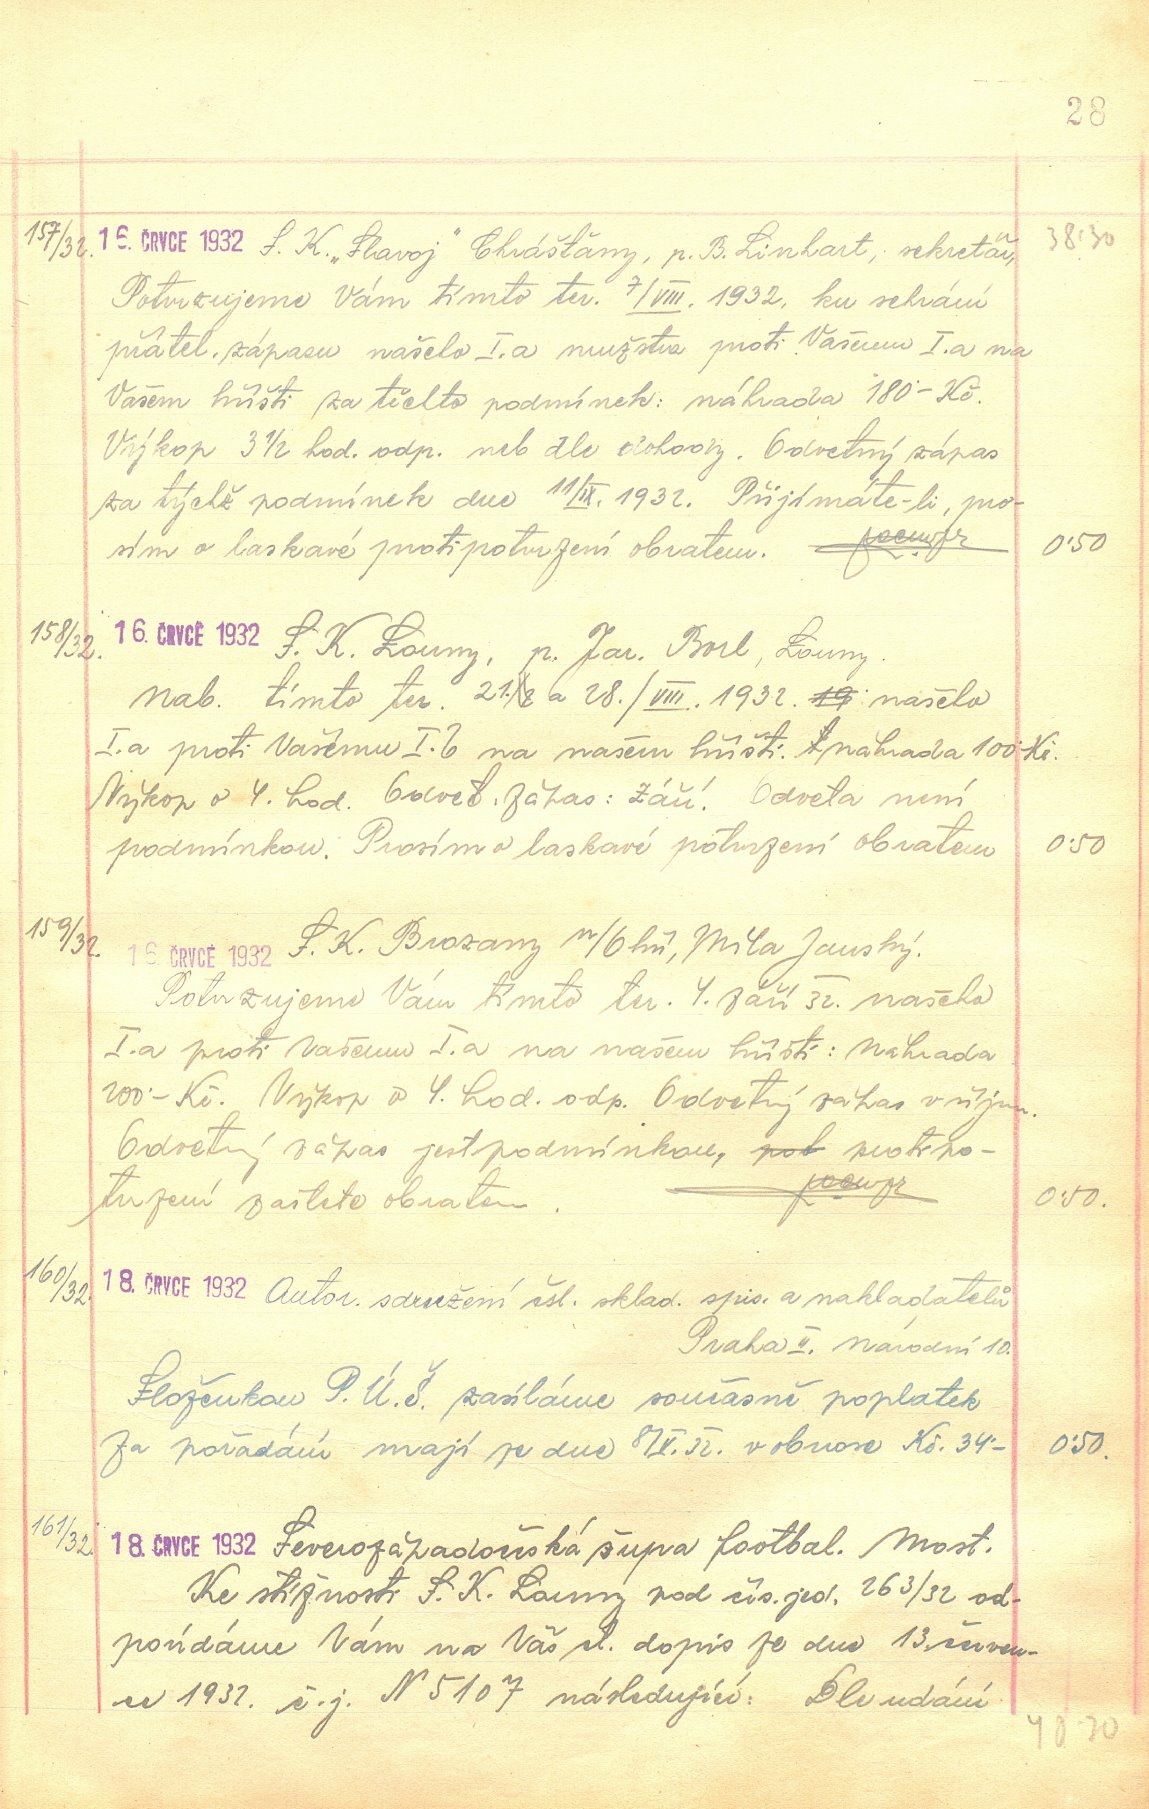 28
157/32. 16. ČRVCE 1932 S. K. „Slavoj" Chrášťany, p. B. Linhart, sekretář, 38·30
Potvrzujeme Vám tímto ter. 7/VIII. 1932. ku sehrání
přátel. zápasu našeho I.a mužstva proti Vašemu I.a na
Vašem hřišti za těchto podmínek: náhrada 180·- Kč.
Výkop 3 1/2 hod. odp. neb dle dohody. Odvetný zápas
za týchž podmínek dne 11/IX. 1932. Přijímáte-li, pro-
sím o laskavé protipotvrzení obratem. 0·50
158/32. 16. ČRVCE 1932 S. K. Louny, p. Jar. Borl, Louny.
Nab. tímto ter. 21./ a 28./VIII. 1932. 19 našeho
I.a proti Vašemu I.b na našem hřišti. náhrada 100·Kč.
Výkop o 4. hod. Odvet. zápas: Září. Odveta není
podmínkou. Prosím o laskavé potvrzení obratem 0·50
159/32. 16. ČRVCE 1932 S. K. Brozany n/Ohří, Míla Janský.
Potvrzujeme Vám tímto ter. 4. září 32. našeho
I.a proti Vašemu I.a na našem hřišti: náhrada
200·- Kč. Výkop o 4. hod. odp. Odvetný zápas v říjnu.
Odvetný zápas jest podmínkou, pot protipo-
tvrzení zašlete obratem. 0·50.
160/32. 18. ČRVCE 1932 Autor. sdružení čsl. sklad. spis. a nakladatelů
Praha II. Národní 10.
Složenkou P. Ú. Š. zasíláme současně poplatek
za pořádání mají ze dne 8/V. 32. v obnose Kč. 34·- 0·50.
161/32. 18. ČRVCE 1932 Severozápadočeská župa footbal. Most.
Ke stížnosti S. K. Louny pod čís. jed. 263/32 od-
povídáme Vám na Váš ct. dopis ze dne 13. červen-
ce 1932. č. j. N 5107 následující: Dle udání
40·30